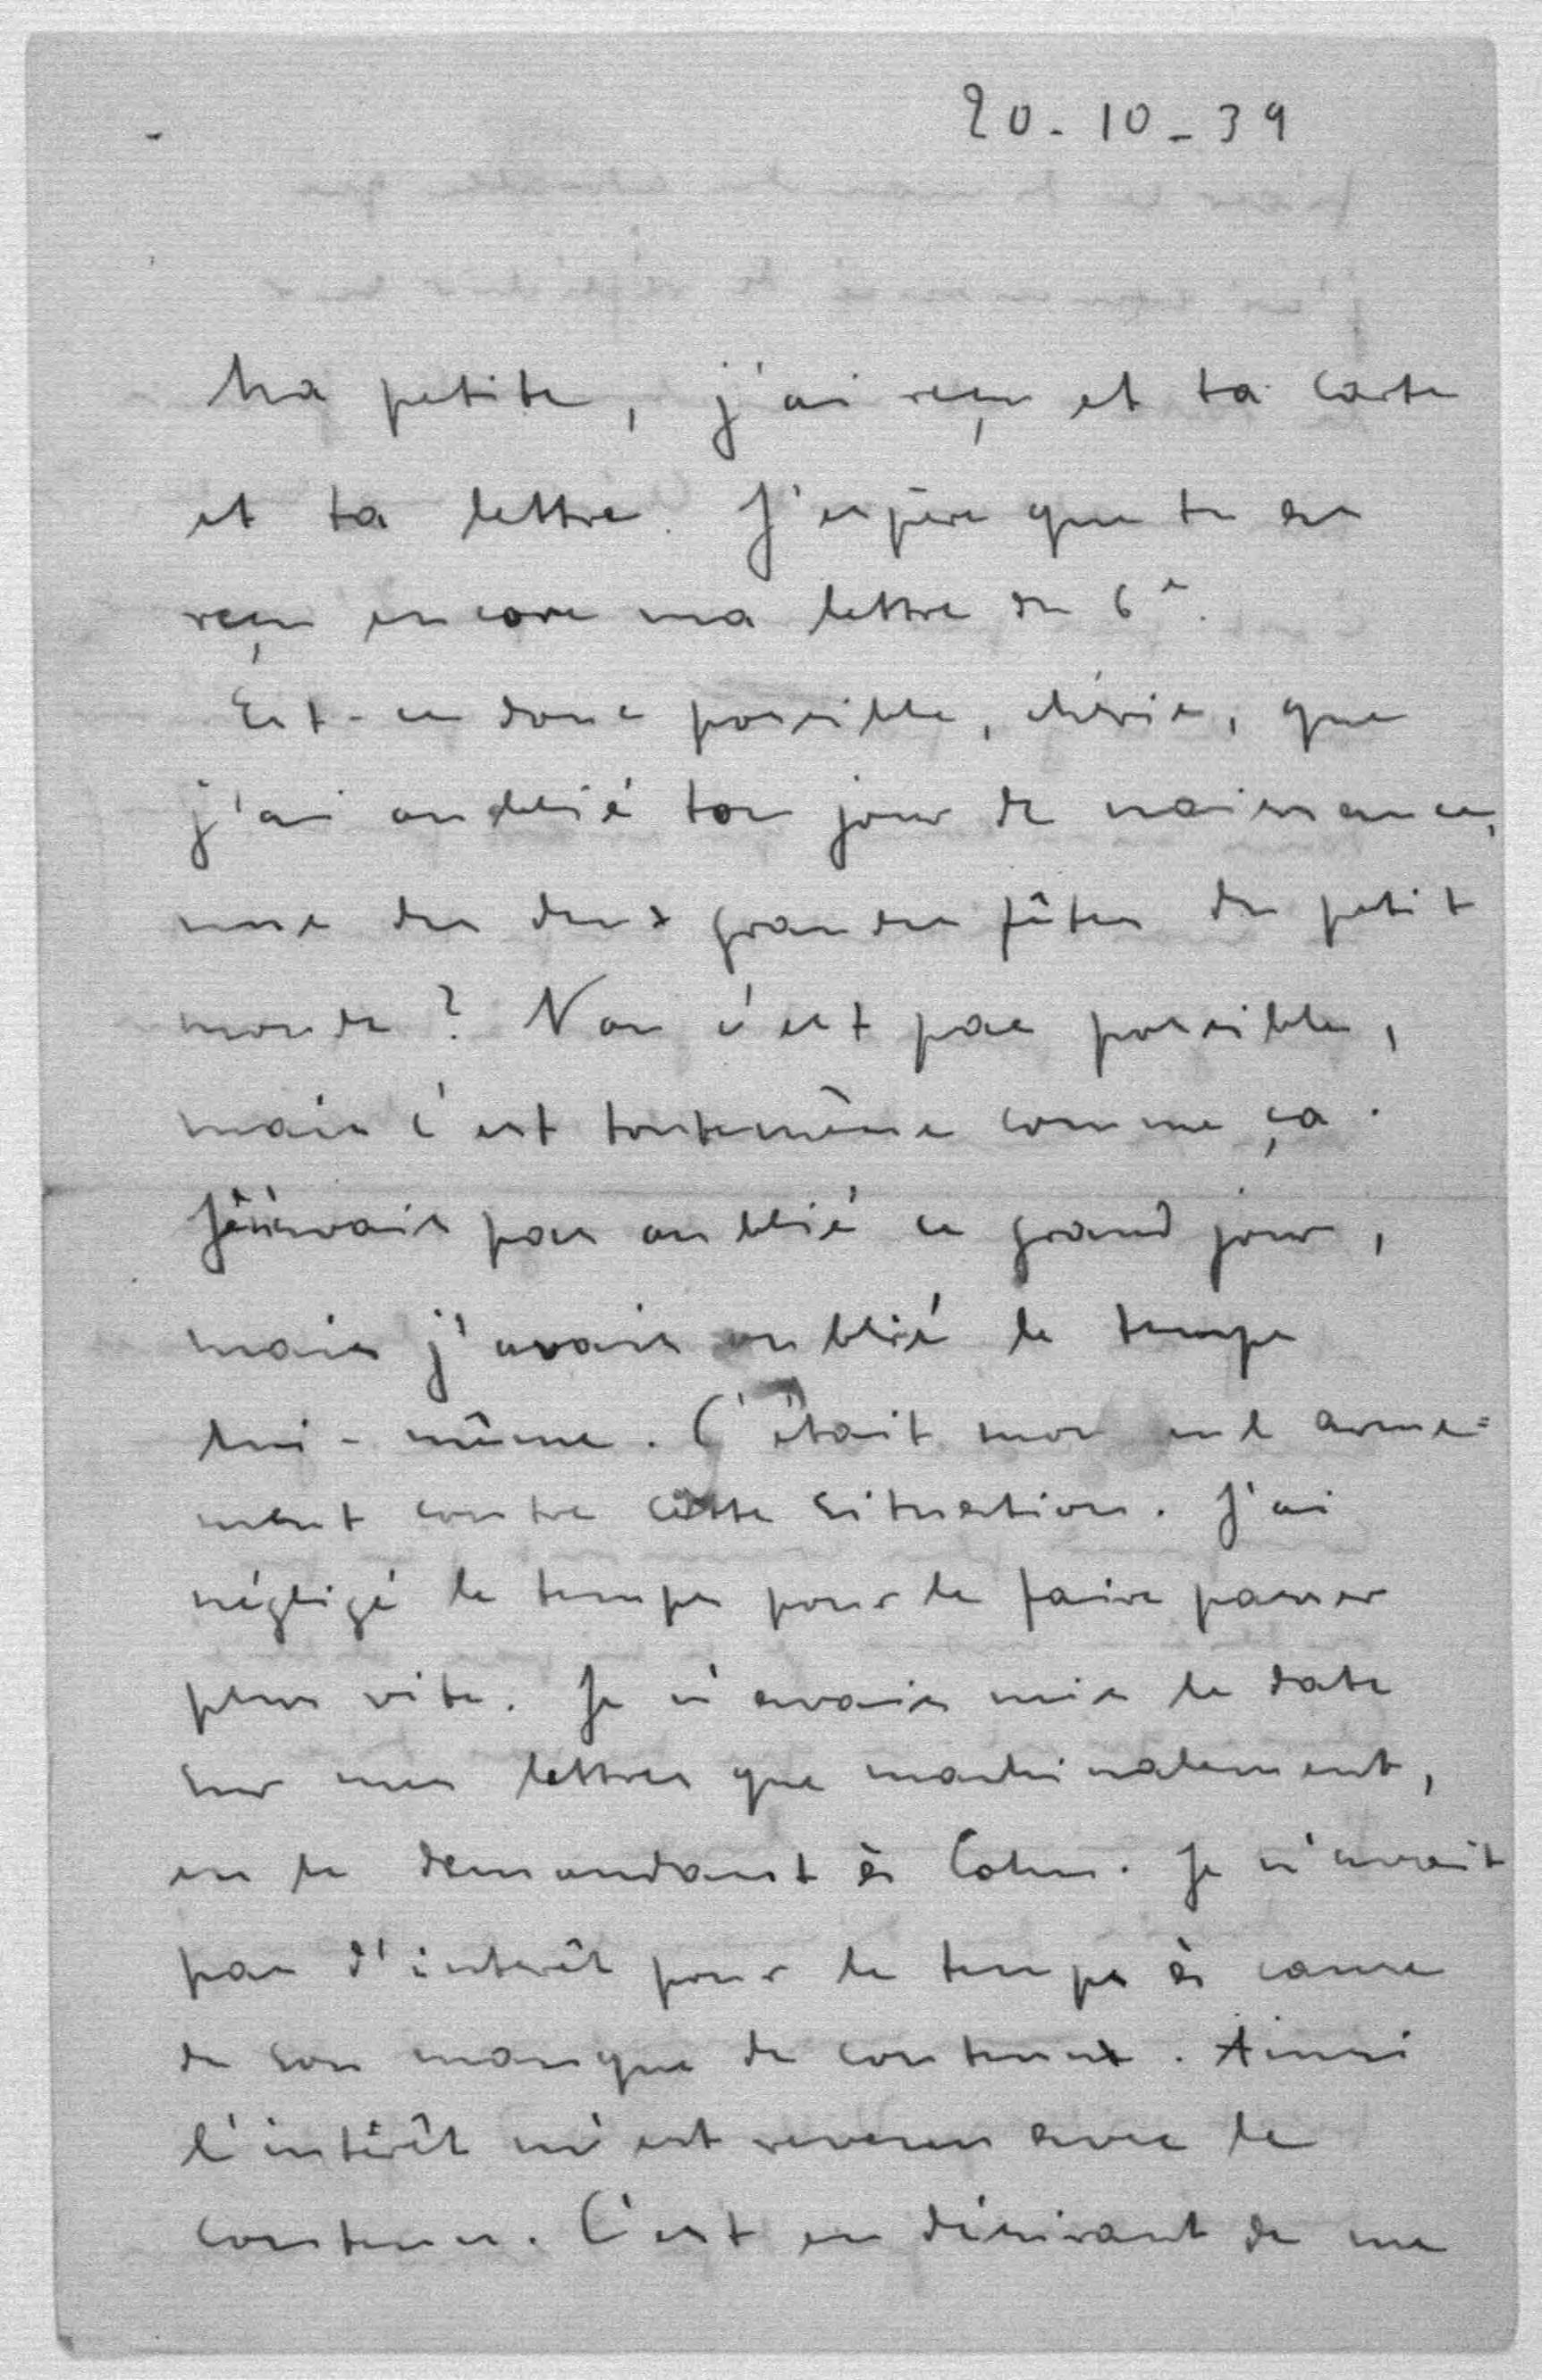 20-10-39
Ma petite, j'ai reçu et ta carte
et ta lettre. J'espère que tu as
reçu encore ma lettre du 6e.
Est-ce donc possible, chérie, que
j'ai oublié ton jour de naissance,
une des deux grandes fêtes du petit
monde? Non c'est pas possible,
mais c'est toutemême comme ça.
pas oublié ce grand jour,
mais j'avais oublié le temps
lui-même. C'était mon seul arme=
ment contre cette situation. J'ai
négligé le temps pour le faire passer
plus vite. Je n'avais mis la date
sur mes lettres que machinalement,
en la demandant à Cohn. Je n'avait
pas d'intérêt pour le temps à cause
de son manque de contenu. Ainsi
l'intérêt m'est revenu avec le
contenu. C'est en désirant de me